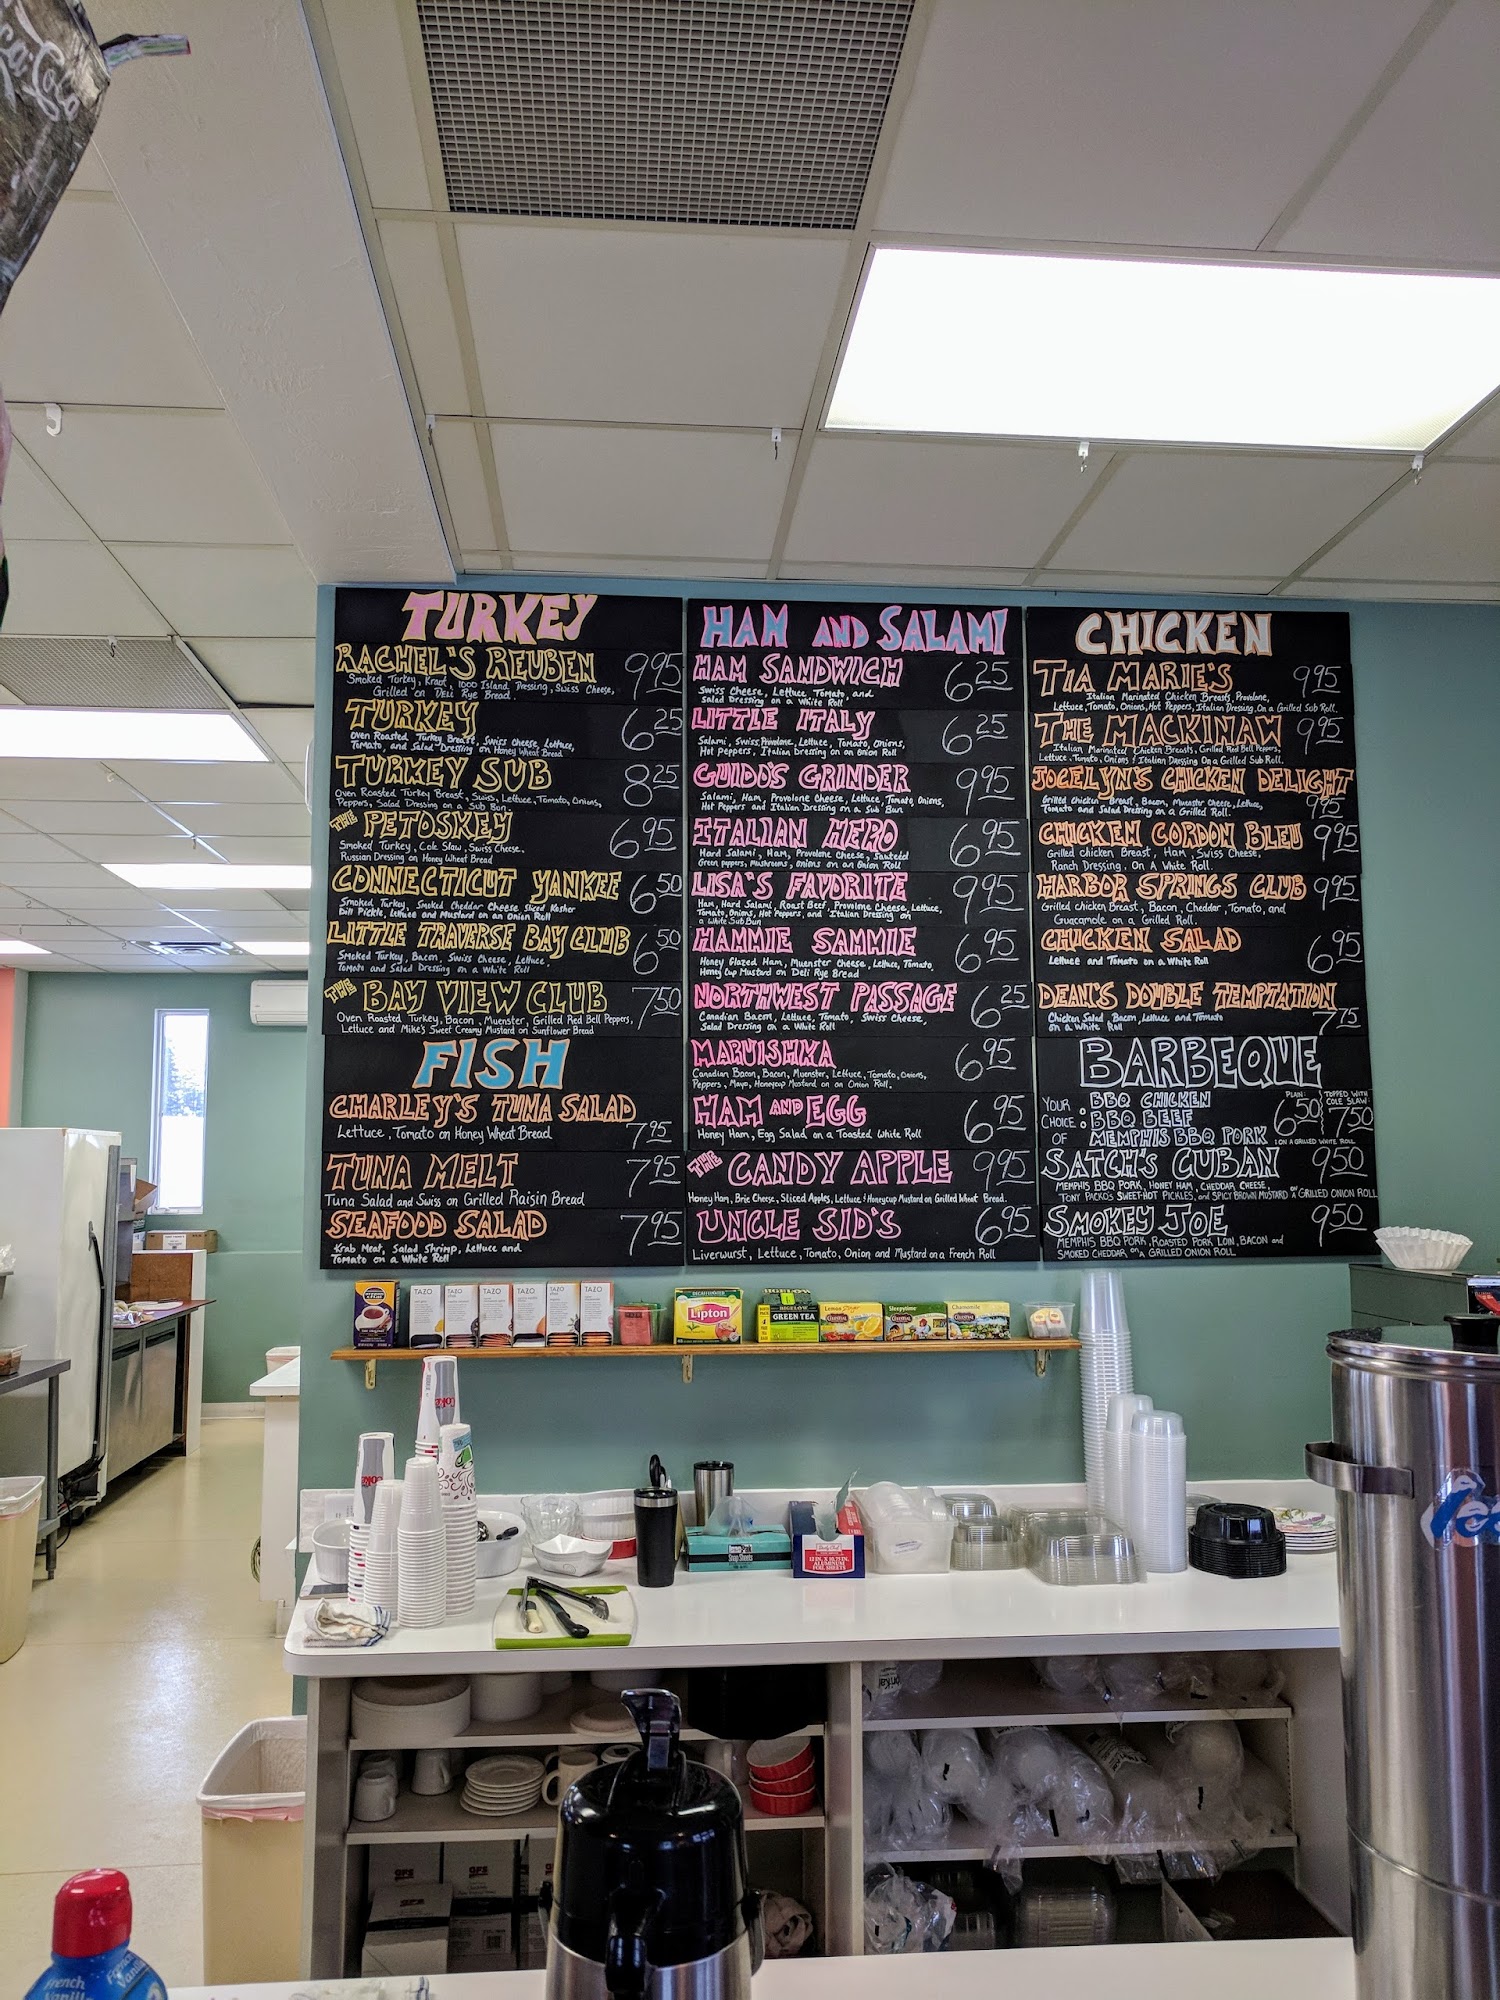 TURKEY
RACHEL'S REUBEN 9.95
Smoked Turkey, Kraut, 1000 Island, Dressing, Swiss Cheese,
Grilled on Deli Rye Bread
TURKEY 6.25
Oven Roasted Turkey Breast, Swiss Cheese, Lettuce,
Tomato, and Salad Dressing on Honey Wheat Bread
TURKEY SUB 8.25
Oven Roasted Turkey Breast, Swiss, Lettuce, Tomato, Onions,
Peppers, Salad Dressing on a Sub Bun.
THE PETOSKEY 6.95
Smoked Turkey, Cole Slaw, Swiss Cheese,
Russian Dressing on Honey Wheat Bread
CONNECTICUT YANKEE 6.50
Smoked Turkey, Smoked Cheddar Cheese Sliced Kosher
Dill Pickle, Lettuce and Mustard on an Onion Roll
LITTLE TRAVERSE BAY CLUB 6.50
Smoked Turkey, Bacon, Swiss Cheese, Lettuce,
Tomato and Salad Dressing on a White Roll
THE BAY VIEW CLUB 7.50
Oven Roasted Turkey, Bacon, Muenster, Grilled Red Bell Peppers,
Lettuce and Mike's Sweet Creamy Mustard on Sunflower Bread
FISH
CHARLEY'S TUNA SALAD
Lettuce, Tomato on Honey Wheat Bread 7.95
TUNA MELT 7.95
Tuna Salad and Swiss on Grilled Raisin Bread
SEAFOOD SALAD 7.95
Krab Meat, Salad Shrimp, Lettuce and
Tomato on a White Roll
HAM AND SALAMI
HAM SANDWICH 6.25
Swiss Cheese, Lettuce, Tomato, and
Salad Dressing on a White Roll
LITTLE ITALY 6.25
Salami, Swiss, Provolone, Lettuce, Tomato, Onions,
Hot Peppers, Italian Dressing on an Onion Roll
GUIDO'S GRINDER 9.95
Salami, Ham, Provolone Cheese, Lettuce, Tomato, Onions,
Hot Peppers and Italian Dressing on a Sub Bun
ITALIAN HERO 6.95
Hard Salami, Ham, Provolone Cheese, Sauteéd
Green peppers, Mushrooms, onions on an Onion Roll
LISA'S FAVORITE 9.95
Ham, Hard Salami, Roast Beef, Provolone Cheese, Lettuce,
Tomato, Onions, Hot Peppers, and Italian Dressing on
a White Sub Bun
HAMMIE SAMMIE 6.95
Honey Glazed Ham, Muenster Cheese, Lettuce, Tomato,
Honey Cup Mustard on Deli Rye Bread
NORTHWEST PASSAGE 6.25
Canadian Bacon, Lettuce, Tomato, Swiss Cheese,
Salad Dressing on a White Roll
MARUISHKA 6.95
Canadian Bacon, Bacon, Muenster, Lettuce, Tomato, Onions,
Peppers, Mayo, Honeycup Mustard on an Onion Roll.
HAM AND EGG 6.95
Honey Ham, Egg Salad on a Toasted White Roll
THE CANDY APPLE 9.95
Honey Ham, Brie Cheese, Sliced Apples, Lettuce & Honeycup Mustard on Grilled Wheat Bread.
UNCLE SID'S 6.95
Liverwurst, Lettuce, Tomato, Onion and Mustard on a French Roll
CHICKEN
TIA MARIE'S 9.95
Italian Marinated Chicken Breasts, Provolone,
Lettuce, Tomato, Onions, Hot Peppers, Italian Dressing On a Grilled Sub Roll.
THE MACKINAW 9.95
Italian Marinated Chicken Breasts, Grilled Red Bell Peppers,
Lettuce, Tomato, Onions & Italian Dressing On a Grilled Sub Roll.
JOCELYN'S CHICKEN DELIGHT
Grilled Chicken Breast, Bacon, Muenster Cheese, Lettuce,
Tomato and Salad Dressing on a Grilled Roll. 9.95
CHICKEN CORDON BLEU 9.95
Grilled chicken Breast, Ham, Swiss Cheese,
Ranch Dressing, On A White Roll.
HARBOR SPRINGS CLUB 9.95
Grilled Chicken Breast, Bacon, Cheddar, Tomato, and
Guacamole on a Grilled Roll.
CHICKEN SALAD 6.95
Lettuce and Tomato on a White Roll
DEAN'S DOUBLE TEMPTATION
Chicken Salad, Bacon, Lettuce and Tomato
on a White Roll 7.75
BARBEQUE
YOUR CHOICE OF: BBQ CHICKEN
BBQ BEEF
MEMPHIS BBQ PORK
PLAIN: 6.50
TOPPED WITH COLE SLAW: 7.50
ON A GRILLED WHITE ROLL
SATCH'S CUBAN 9.50
MEMPHIS BBQ PORK, HONEY HAM, CHEDDAR CHEESE,
TONY PACKO'S SWEET-HOT PICKLES, AND SPICY BROWN MUSTARD ON A GRILLED ONION ROLL
SMOKEY JOE 9.50
MEMPHIS BBQ PORK, ROASTED PORK LOIN, BACON and
SMOKED CHEDDAR, ON A GRILLED ONION ROLL
TAZO
TAZO
TAZO
TAZO
TAZO
TAZO
DECAFFEINATED
Lipton
BIGELOW
GREEN TEA
Lemon Zinger
Sleepytime
Chamomile
COKE
COKE
Snap Sheets
12 IN. X 10.75 IN.
ALUMINUM
FOIL SHEETS
GFS
GFS
GFS
French
Vanilla